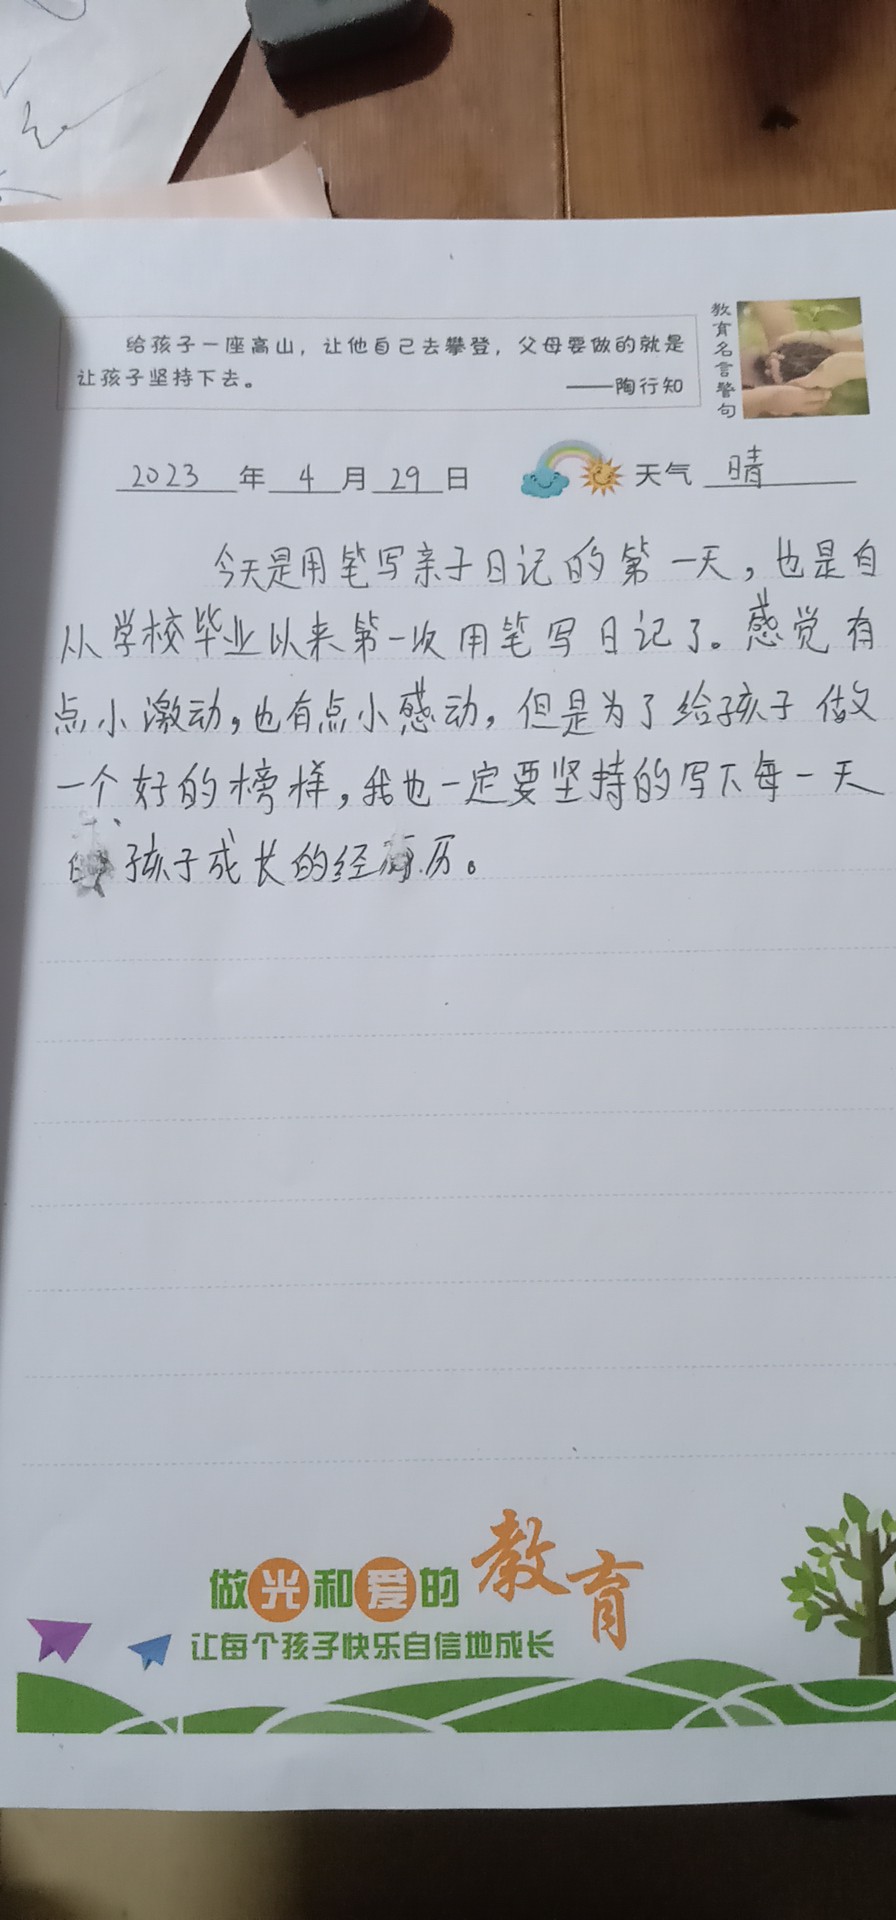 给孩子一座高山，让他自己去攀登，父母要做的就是
让孩子坚持下去。
——陶行知
教育名言警句
2023年4月29日 天气 晴
今天是用笔写亲子日记的第一天，也是自
从学校毕业以来第一次用笔写日记了。感觉有
点小激动，也有点小感动，但是为了给孩子做
一个好的榜样，我也一定要坚持的写下每一天
孩子成长的经历。
做光和爱的教育
让每个孩子快乐自信地成长